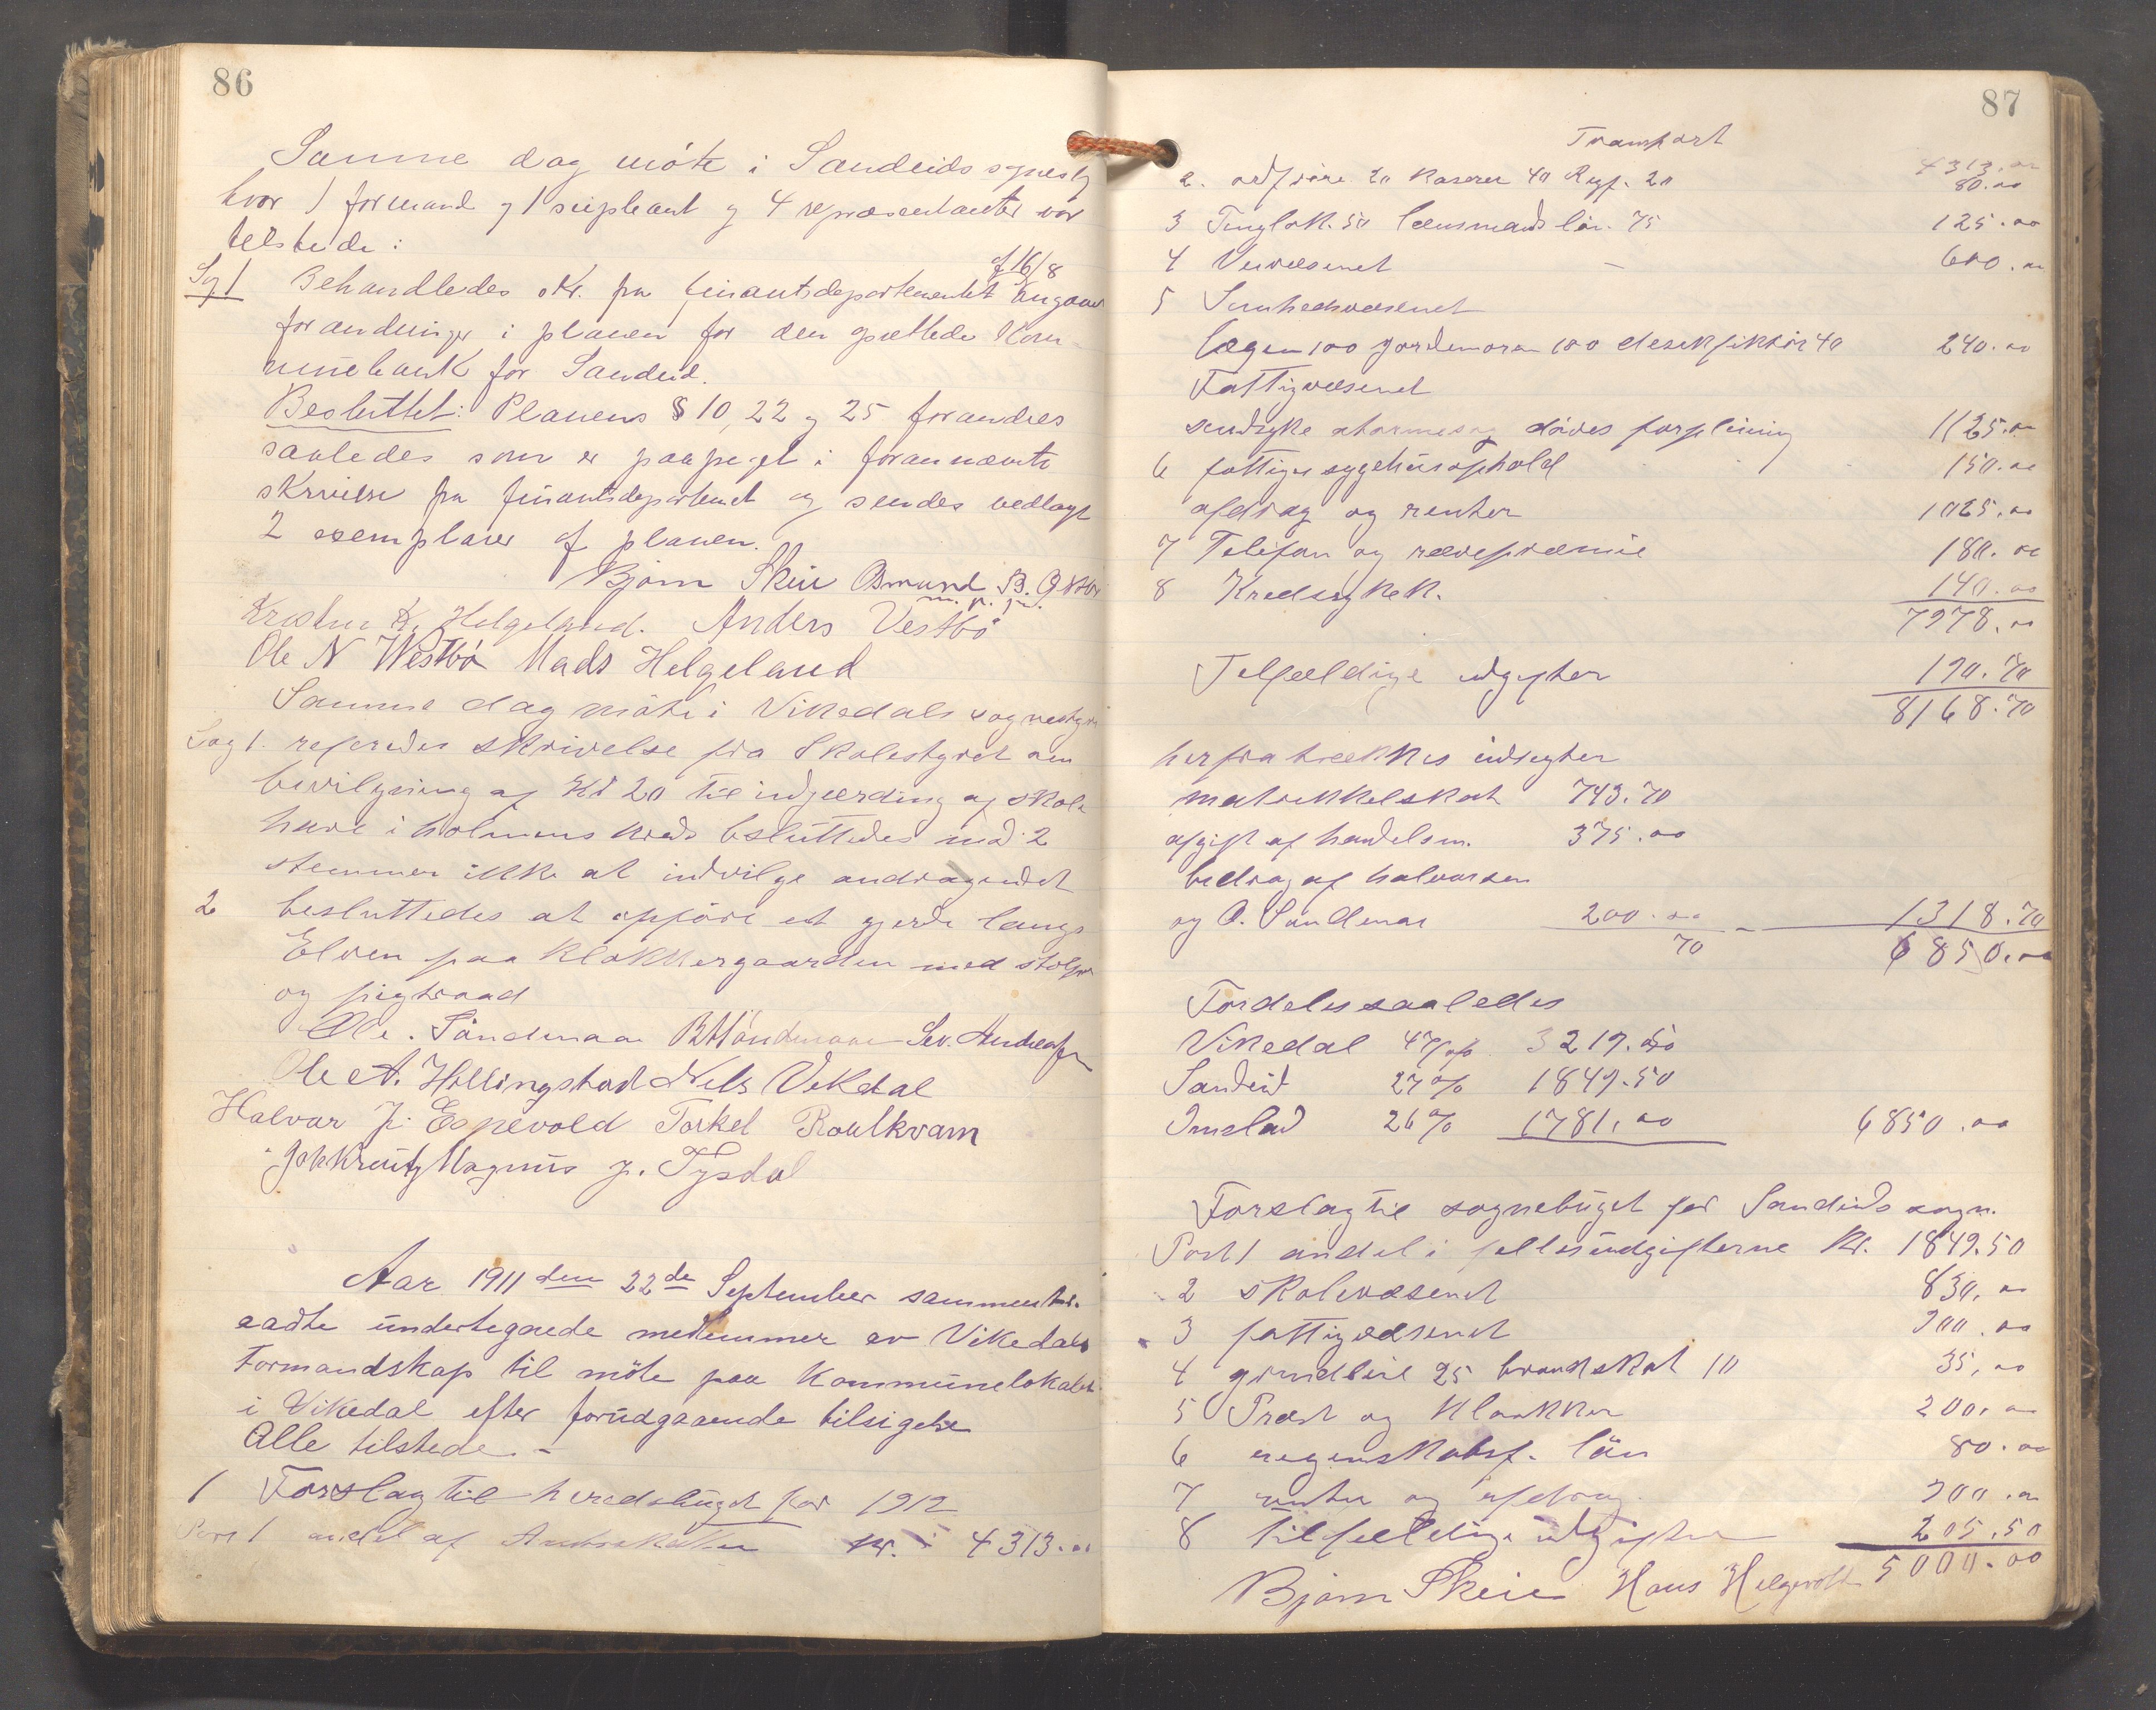 86
Samme dag møte i Sandeids sognesty
hvor 1 formand og 1 supleant og 4 repræsentanter var
tilstede:
Sag 1 Behandledes skr. fra finantsdepartementet af 16/8 angaaende
forandringer i planen for den oprettede Kom-
munebank for Sandeid.
Besluttet: Planens § 10, 22 og 25 forandres
saaledes som er paapeget i forannævnte
skrivelse fra finantsdepartemet og sendes vedlagt
2 exemplarer af planen.
Bjørn Skeie Osmund B.
m. p. p.
K. Helgeland. Anders Vestbø
Ole N Westbø Mads Helgeland
Samme dag møte i Vikedals sognestyre
Sag 1. refereredes skrivelse fra Skolestyret om
bevilgning af Kr 20 til indgjærding af skole
have i holmens kreds besluttedes med 2
stemmer ikke at indvilge andragendet
2 besluttedes at opføre et gjerde langs
Elven paa Klokkergaarden med stolper
og pigtraad
Ole. Søndenaa B H Søndenaa Sev. Andreasen
Ole A. Hillingstad Nels Vikdal
Halvar J. Espevold Torkel Roalkvam
Joh Kreutz Magnus J. Tysdal
Aar 1911 den 22de September sammentr-
aadte undertegnede medlemmer av Vikedals
Formandskap til møte paa Kommunelokalet
i Vikedal efter forudgaaende tilsigelse
Alle tilstede. -
1 Forslag til heredsbuget for 1912
Post 1 andel af Amtsskatten kr. 4313.00
87
Transport 4313.00
2. ordføre 20 kaserer 40 Regf. 20 80.00
3 Tinglok. 50 lensmands løn. 75 125.00
4 Veivæsenet - 600.00
5 Sunhedsvæsenet
lægen 100 jordemoren 100 desekfiktør 40 240.00
Fattigvæsenet
sindsyke aharmes og døves forpleining 1125.00
6 fattiges sygehusophold 150.00
afdrag og renter 1025.00
7 Telefon og rævepræmie 180.00
8 Kredsykek. 140.00
7978.00
Telfældige udgifter 190.70
8168.70
herfra trækkes indtegter
matrikkelskat 743.70
afgift af handelsm. 375.00
bedrag af halvorsen
og O. Søndenaa 200.00 - 1318.70
70 6850.00
Fordeles saaledes
Vikedal 47% 3219.50
Sandeid 27% 1849.50
Imslad 26% 1781.00 6850.00
Forslag til sognebuget for Sandeids sogn.
Post 1 andel i fellesudgifterne Kr. 1849.50
2 skolevæsenet 830.00
3 fattigvæsenet 900.00
4 grundleie 25 brandskat 10 35.00
5 Prest og Klokker 200.00
6 regenskabsf. løn 80.00
7 renter og afdrag. 900.00
8 tilfeldige udgifter 205.50
5000.00
Bjørn Skeie Hans Helgevold